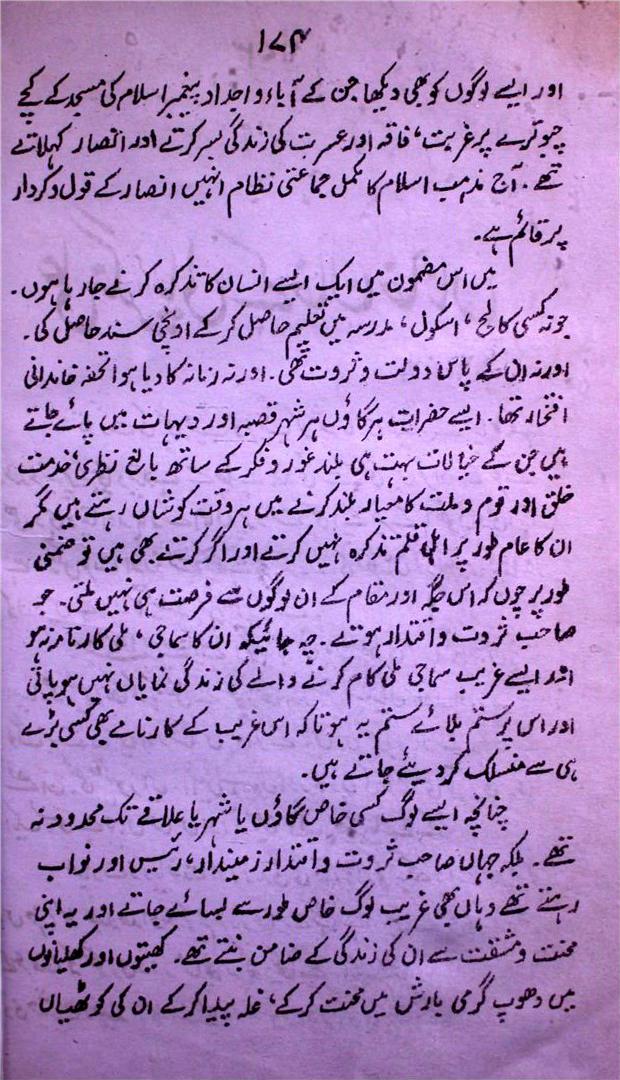 ۱۷۴
اور ایسے لوگوں کو بھی دیکھا جن کے آباء و اجداد پیغمبر اسلام کی مسجد کے کچے
چبوترے پر غربت، فاقہ اور عسرت کی زندگی بسر کرتے اور انصار کہلاتے
تھے۔ آج مذہب اسلام کا مکمل جماعتی نظام انہیں انصار کے قول و کردار
پر قائم ہے۔
میں اس مضمون میں ایک ایسے انسان کا تذکرہ کرنے جا رہا ہوں۔
جو نہ کسی کالج، اسکول، مدرسہ میں تعلیم حاصل کرکے اونچی سند حاصل کی۔
اور نہ ان کے پاس دولت و ثروت تھی۔ اور نہ زمانہ کا دیا ہوا تحفہ خاندانی
افتخار تھا۔ ایسے حضرات ہر گاؤں ہر شہر قصبہ اور دیہات میں پائے جاتے
ہیں جن کے خیالات بہت ہی بلند غور و فکر کے ساتھ بالغ نظری، خدمت
خلق اور قوم و ملت کا معیار بلند کرنے میں ہر وقت کوشاں رہتے ہیں مگر
ان کا عام طور پر اہل قلم تذکرہ نہیں کرتے اور اگر کرتے بھی ہیں تو ضمنی
طور پر چوں کہ اس جگہ اور مقام کے ان لوگوں سے فرصت ہی نہیں ملتی۔ جو
صاحب ثروت و اقتدار ہوتے۔ چہ جائیکہ ان کا سماجی، ملی کارنامہ نہ ہو
اور ایسے غریب سماجی ملی کام کرنے والے کی زندگی نمایاں نہیں ہو پاتی
اور اس پر ستم بلائے ستم یہ ہوتا کہ اس غریب کے کارنامے بھی کسی بڑے
ہی سے منسلک کر دیئے جاتے ہیں۔
چنانچہ ایسے لوگ کسی خاص گاؤں یا شہر یا علاقے تک محدود نہ
تھے۔ بلکہ جہاں صاحب ثروت و اقتدار زمیندار، رئیس اور نواب
رہتے تھے وہاں بھی غریب لوگ خاص طور سے بسائے جاتے اور یہ اپنی
محنت و مشقت سے ان کی زندگی کے ضامن بنتے تھے۔ کھیتوں اور کھلیانوں
میں دھوپ گرمی بارش میں محنت کرکے، غلہ پیدا کرکے ان کی کوٹھیاں